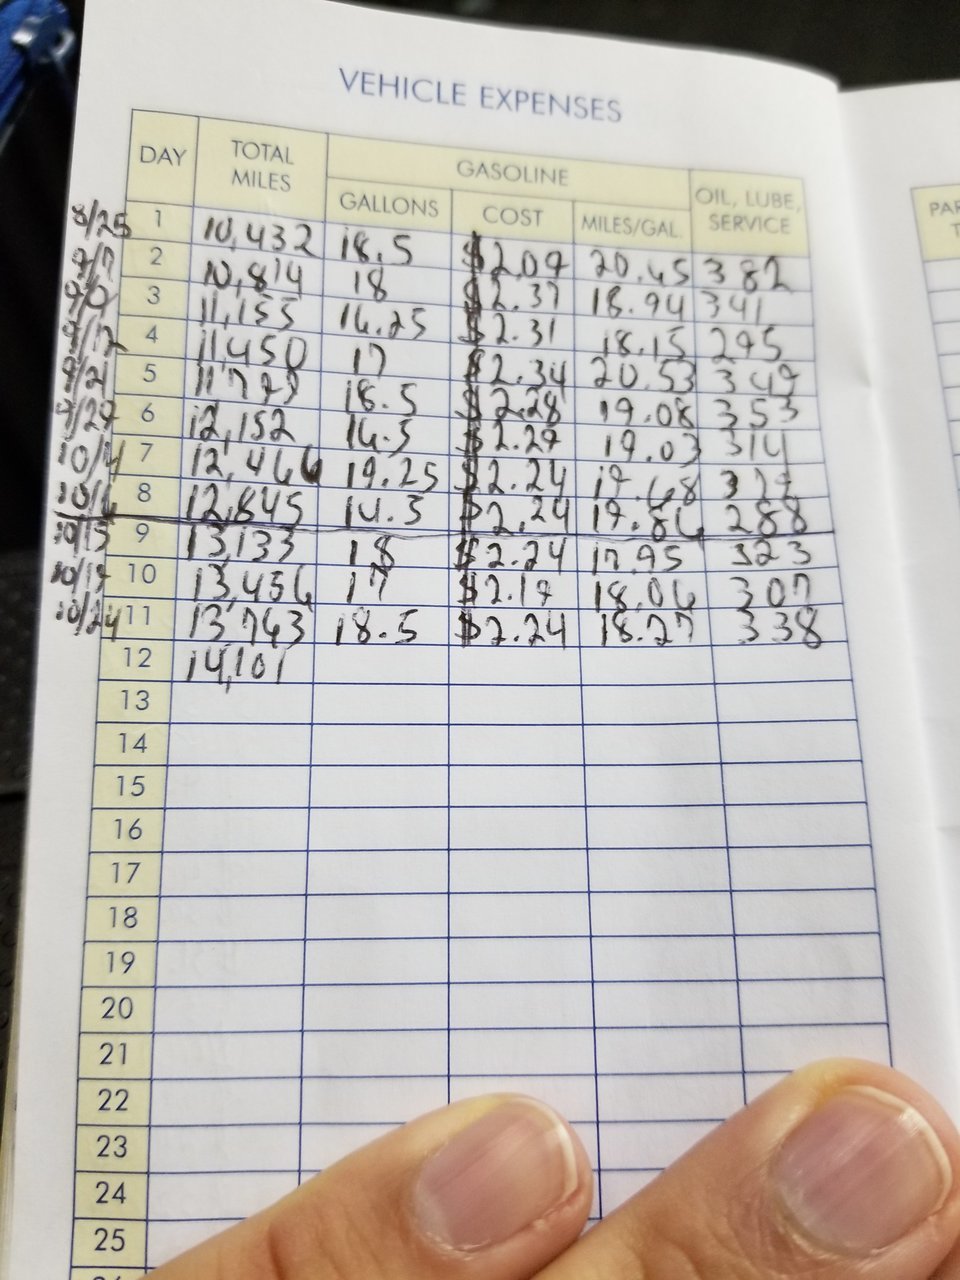 VEHICLE EXPENSES
DAY TOTAL MILES GASOLINE OIL, LUBE, SERVICE
GALLONS COST MILES/GAL.
8/25 1 10,432 18.5 $2.09 20.65 382
2 10,814 18 $2.37 18.94 341
3 11,155 16.25 $2.31 18.15 295
9/12 4 11,450 17 $2.34 20.53 349
9/21 5 11,799 18.5 $2.28 19.08 353
9/29 6 12,152 16.5 $2.29 19.03 314
10/4 7 12,466 19.25 $2.24 19.68 379
10/6 8 12,845 14.5 $2.24 19.86 288
10/15 9 13,133 18 $2.24 17.95 323
10/19 10 13,456 17 $2.19 18.06 307
10/24 11 13,763 18.5 $2.24 18.27 338
12 14,101
13
14
15
16
17
18
19
20
21
22
23
24
25